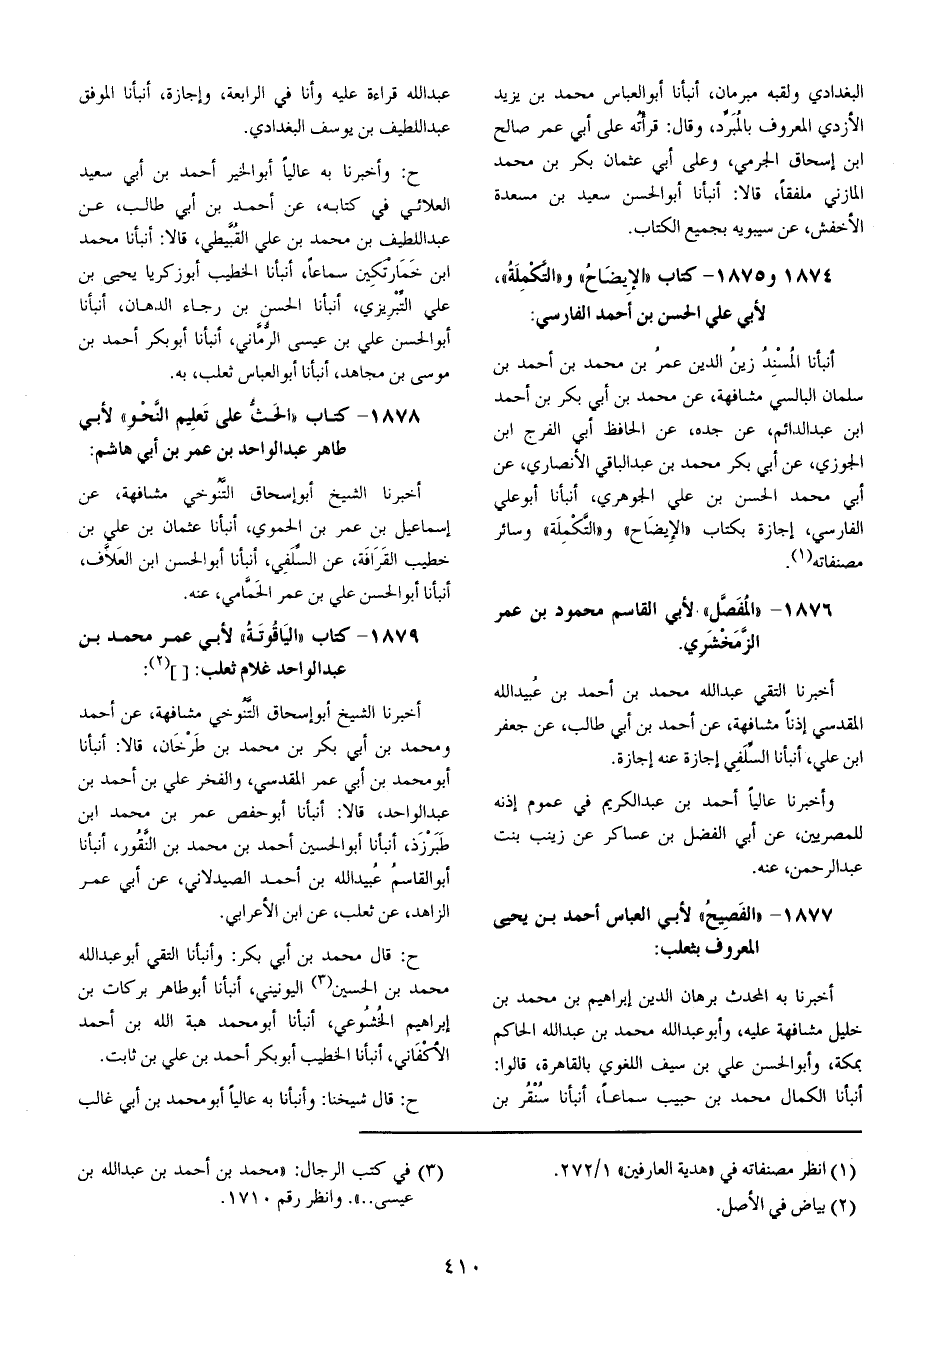 البغدادي ولقبه مبرمان، أنبأنا أبوالعباس محمد بن يزيد
الأزدي المعروف بالمُبَرَّد، وقال: قرأتُه على أبي عمر صالح
ابن إسحاق الجرمي، وعلى أبي عثمان بكر بن محمد
المازني ملفقاً، قالا: أنبأنا أبوالحسن سعيد بن مسعدة
الأخفش، عن سيبويه بجميع الكتاب.
١٨٧٤ و١٨٧٥- كتاب «الإيضاحُ» و«التَّكْمِلَةُ»،
لأبي علي الحسن بن أحمد الفارسي:
أنبأنا المُسْنِدُ زينُ الدين عمرُ بن محمد بن أحمد بن
سلمان البالسي مشافهة، عن محمد بن أبي بكر بن أحمد
ابن عبدالدائم، عن جده، عن الحافظ أبي الفرج ابن
الجوزي، عن أبي بكر محمد بن عبدالباقي الأنصاري، عن
أبي محمد الحسن بن علي الجوهري، أنبأنا أبوعلي
الفارسي، إجازة بكتاب «الإيضَاح» و«التَّكْمِلَة» وسائر
مصنفاته(١).
١٨٧٦- «المُفَصَّل» لأبي القاسم محمود بن عمر
الزَّمَخْشَرِي.
أخبرنا التقي عبدالله محمد بن أحمد بن عُبيدالله
المقدسي إذناً مشافهة، عن أحمد بن أبي طالب، عن جعفر
ابن علي، أنبأنا السِّلَفي إجازة عنه إجازة.
وأخبرنا عالياً أحمد بن عبدالكريم في عموم إذنه
للمصريين، عن أبي الفضل بن عساكر عن زينب بنت
عبدالرحمن، عنه.
١٨٧٧- «الفَصِيحُ» لأبي العباس أحمد بن يحيى
المعروف بثعلب:
أخبرنا به المحدث برهان الدين إبراهيم بن محمد بن
خليل مشافهة عليه، وأبوعبدالله محمد بن عبدالله الحاكم
بمكة، وأبوالحسن علي بن سيف اللغوي بالقاهرة، قالوا:
أنبأنا الكمال محمد بن حبيب سماعاً، أنبأنا سُنْقُر بن
عبدالله قراءة عليه وأنا في الرابعة، وإجازة، أنبأنا الموفق
عبداللطيف بن يوسف البغدادي.
ح: وأخبرنا به عالياً أبوالخير أحمد بن أبي سعيد
العلائي في كتابه، عن أحمد بن أبي طالب، عن
عبداللطيف بن محمد بن علي القُبَّيطي، قالا: أنبأنا محمد
ابن خَمَارْتَكِين سماعاً، أنبأنا الخطيب أبوزكريا يحيى بن
علي التِّبْرِيزي، أنبأنا الحسن بن رجاء الدهان، أنبأنا
أبوالحسن علي بن عيسى الرُّمَّاني، أنبأنا أبوبكر أحمد بن
موسى بن مجاهد، أنبأنا أبوالعباس ثعلب، به.
١٨٧٨- كتاب «الحَثُّ على تَعليم النَّحْو» لأبي
طاهر عبدالواحد بن عمر بن أبي هاشم:
أخبرنا الشيخ أبوإسحاق التَّنُوخي مشافهة، عن
إسماعيل بن عمر بن الحموي، أنبأنا عثمان بن علي بن
خطيب القَرَافَة، عن السِّلَفي، أنبأنا أبوالحسن ابن العَلاَّف،
أنبأنا أبوالحسن علي بن عمر الحَمَّامي، عنه.
١٨٧٩- كتاب «اليَاقُوتَةُ» لأبي عمر محمد بن
عبدالواحد غلام ثعلب: [ ](٢):
أخبرنا الشيخ أبوإسحاق التَّنُوخي مشافهة، عن أحمد
ومحمد بن أبي بكر بن محمد بن طَرْخَان، قالا: أنبأنا
أبومحمد بن أبي عمر المقدسي، والفخر علي بن أحمد بن
عبدالواحد، قالا: أنبأنا أبوحفص عمر بن محمد ابن
طَبَرْزَذ، أنبأنا أبوالحسين أحمد بن محمد بن النَّقُور، أنبأنا
أبوالقاسمُ عُبيدالله بن أحمد الصيدلاني، عن أبي عمر
الزاهد، عن ثعلب، عن ابن الأعرابي.
ح: قال محمد بن أبي بكر: وأنبأنا التقي أبوعبدالله
محمد بن الحسين(٣) اليونيني، أنبأنا أبوطاهر بركات بن
إبراهيم الخُشُوعي، أنبأنا أبومحمد هبة الله بن أحمد
الأكْفَاني، أنبأنا الخطيب أبوبكر أحمد بن علي بن ثابت.
ح: قال شيخنا: وأنبأنا به عالياً أبومحمد بن أبي غالب
(١) انظر مصنفاته في «هدية العارفين» ٢٧٢/١.
(٢) بياض في الأصل.
(٣) في كتب الرجال: «محمد بن أحمد بن عبدالله بن
عيسى..». وانظر رقم ١٧١٠.
٤١٠